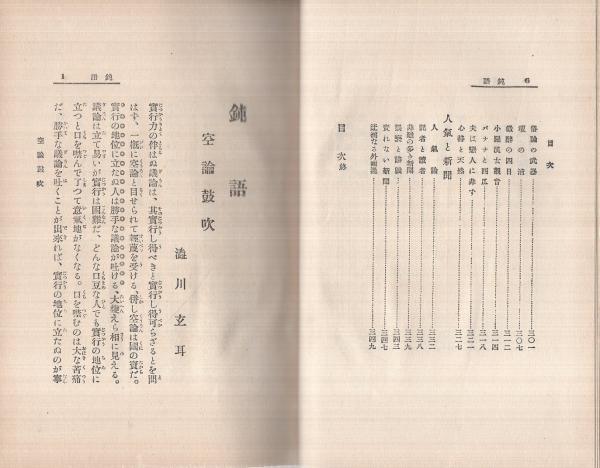 6 鈍語
目次
俗論の武器……三〇一
壇の浦……三〇七
戯談の四日……三一二
小羅漢女観音……三一四
バナナと西瓜……三一八
夫は戀人に非ず……三二一
心静と天添……三二七
人氣と新聞
人氣論……三三二
記者と讀者……三三八
三三九
三四三
賣れない新聞……三四六
三四九
目次終
鈍語 1
鈍語
空論鼓吹
澁川玄耳
實行力の伴はぬ議論は、其實行し得べきと實行し得可らざるとを問
はず、一概に空論と目せられて輕蔑を受ける、併し空論は國の寳だ。
實行の地位に立たぬ人は勝手な議論が吐ける、大變えら相に見える。
議論は立て易いが實行は困難だ、どんな口豆な人でも實行の地位に
立つと口を噤んで了つて意氣地がなくなる。口を噤むのは大な苦痛
だ、勝手な議論を吐くことが出來れば、實行の地位に立たぬのが寧
空論鼓吹